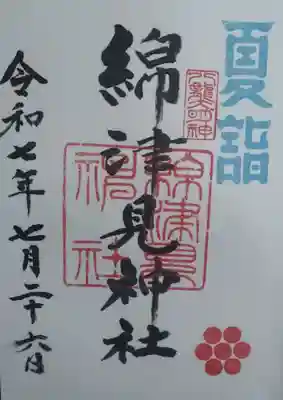 夏詣
八龍神
綿津見神社
綿津見
神社
令和七年七月二十六日